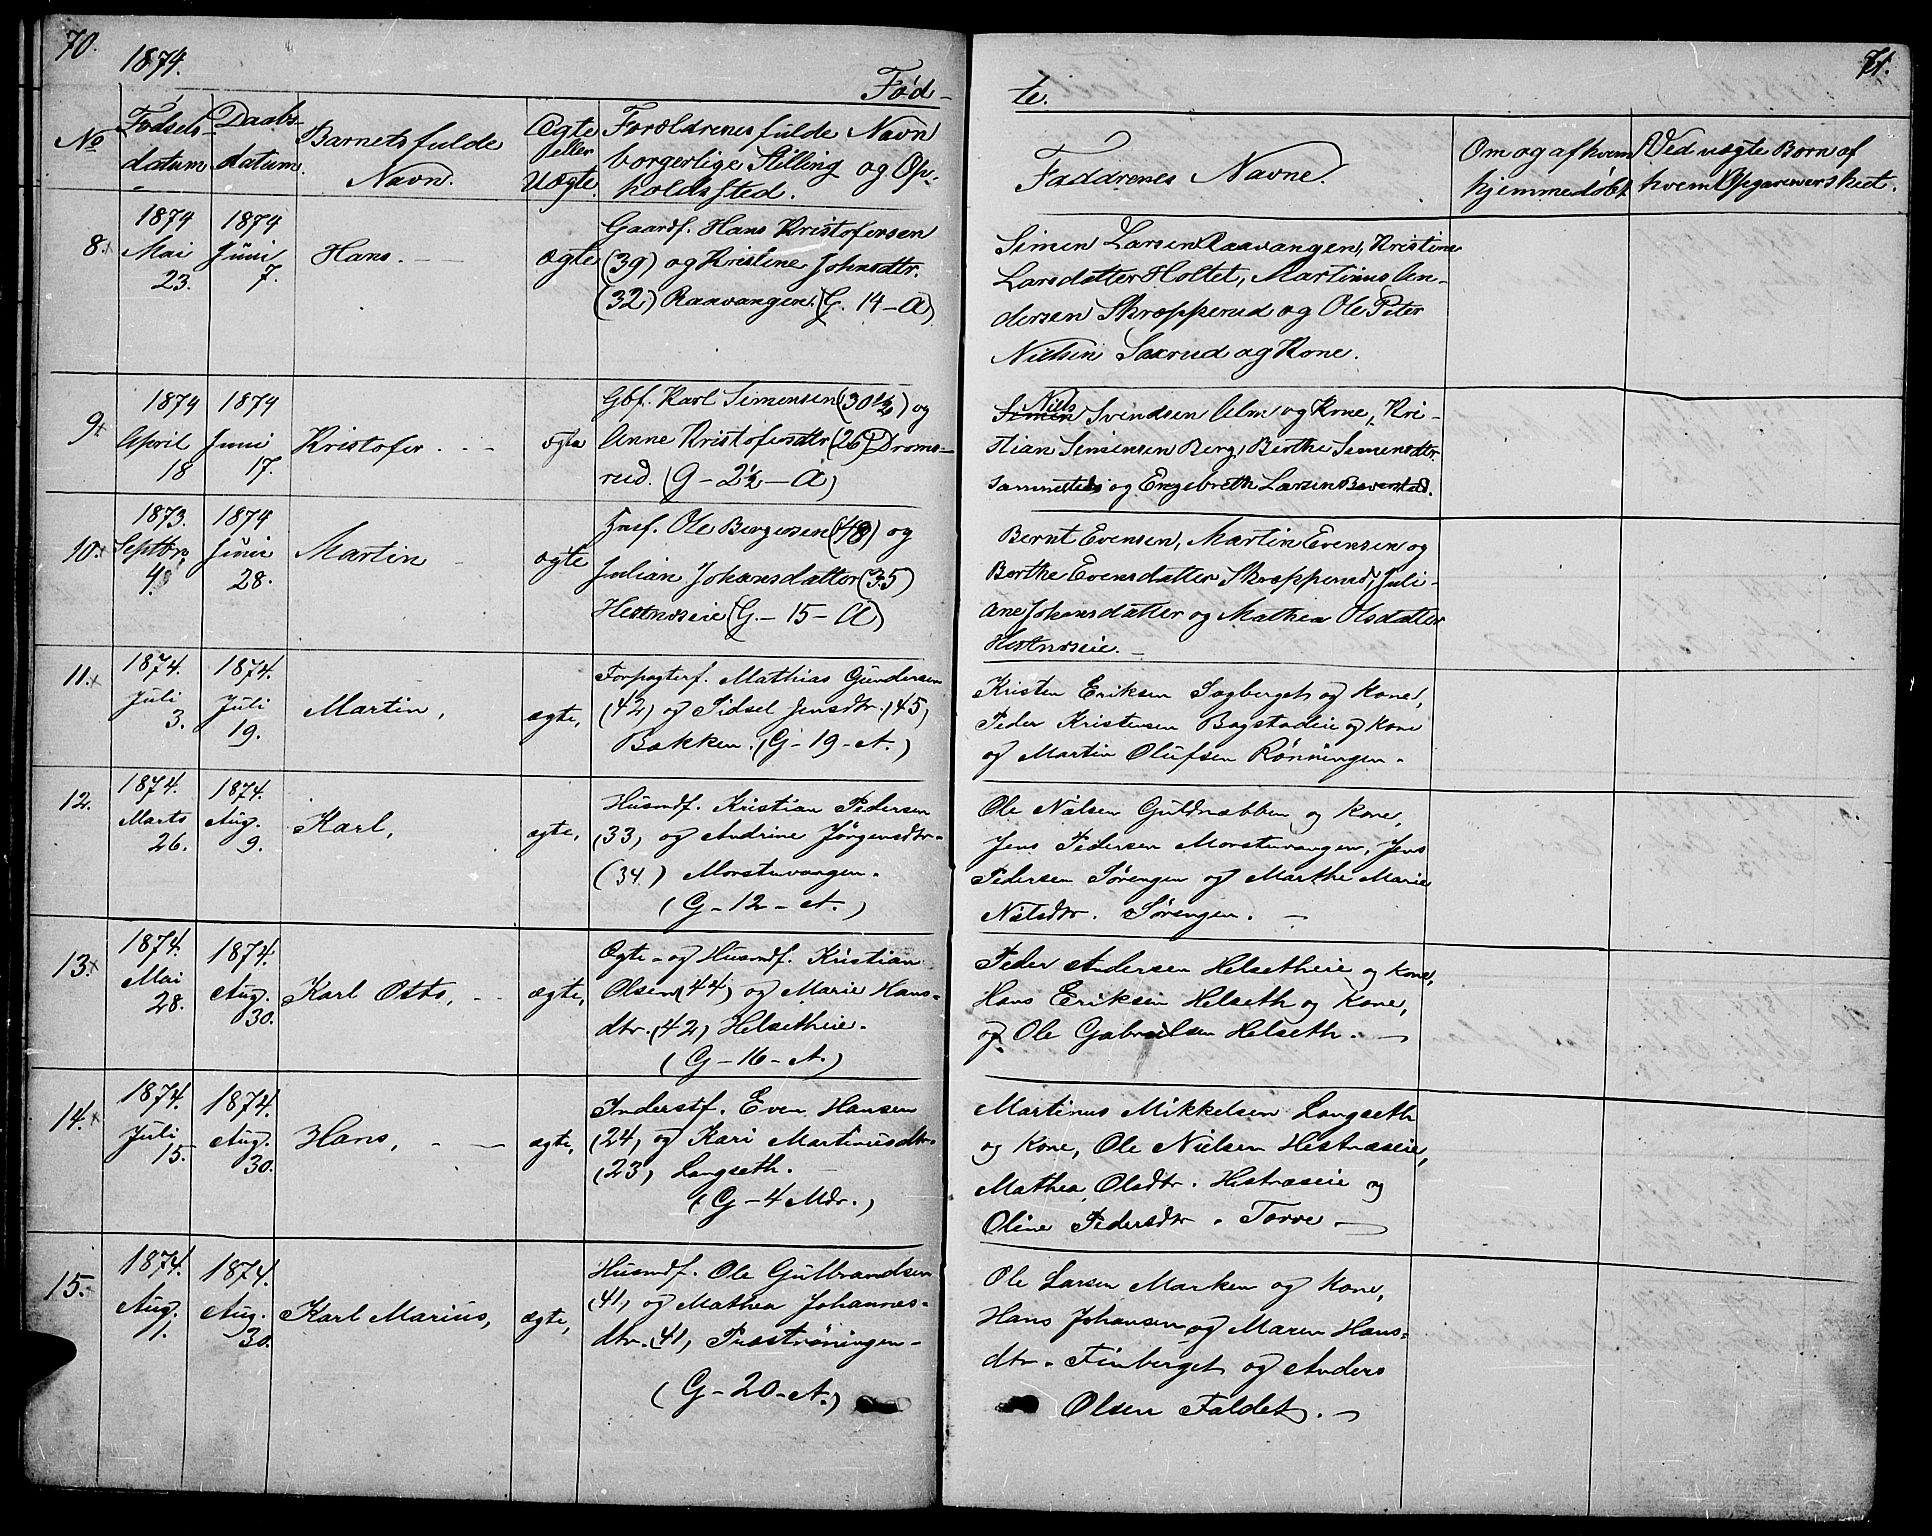 70.
1874.
Fød-
No
Fødsels-
datum
Daabs-
datum.
Barnets fulde
Navn.
Ægte
eller
Uægte.
Forældrenes fulde Navn
borgerlige Stilling og Op-
holdssted.
8.
1874
Mai
23.
1874
Juni
7.
Hans.
ægte
Gaardf. Hans Kristofersen
(39) og Kristine Johnsdtr.
(32) Raavangen. (G. 14-A)
9.
1874
April
18
1874
Juni
17.
Kristofer.
ægte
Gbf. Karl Simensen (30 1/2) og
Anne Kristofersdtr (26) Droms-
rud. (G - 2 1/2 - A)
10.
1873.
Septbr.
4.
1874
Juni
28.
Martin
ægte
Insf. Ole Bergersen (48) og
Julian Johansdatter (35)
Hestnæseie (G. - 15 - A)
11.
1874.
Juli
3.
1874.
Juli
19.
Martin,
ægte,
Forpagterf. Mathias Gundersen
(42) og Sidsel Jensdtr. (45)
Bakken. (G - 19 - A.)
12.
1874.
Marts
26.
1874.
Aug.
9.
Karl,
ægte,
Husmdf. Kristian Pedersen
(33) og Andrine Jørgensdtr.
(34) Morstuvangen.
(G - 12 - A.)
13.
1874.
Mai
28.
1874.
Aug.
30.
Karl Otto,
ægte,
Ægte- og Husmdf. Kristian
Olsen (44) og Marie Hans-
dtr. (42) Helsetheie.
(G - 16 - A.)
14.
1874.
Juli
15.
1874.
Aug.
30.
Hans,
ægte,
Inderstf. Even Hansen
(24) og Kari Martinusdtr.
(23) Langseth.
(G - 4 Mdr.)
15.
1874.
Aug.
1.
1874.
Aug.
30.
Karl Marius,
ægte,
Husmdf. Ole Gulbrandsen
(41) og Mathea Johannes-
dtr. (41) Præstrøningen-
(G - 20 - A.)
71.
te.
Faddrenes Navne.
Om og af hvem
hjemmedøbt.
Ved uægte Børn af
hvem Opgaven er skeet.
Simen Larsen Raavangen, Kristine
Larsdatter Holtet, Martinus An-
dersen Skrepperud og Ole Peter
Nielsen Saxrud og Kone.
Niels
Simen Svendsen Alm og Kone, Kri-
stian Simensen Berg, Berthe Simensdtr.
sammesteds og Engebreth Larsen
Bernt Evensen, Martin Evensen og
Berthe Evensdatter Skrepperud, Juli-
ane Johansdatter og Mathea Olsdatter
Hestnæseie.
Kristen Eriksen Sagberget og Kone,
Peder Kristensen Bagstadeie og Kone
og Martin Olufsen Rønningen.
Ole Nilsen Guldnæbben og Kone,
Jens Pedersen Morstuvangen, Jens
Pedersen Sørengen og Marthe Marie
Nilsdtr. Sørengen.
Peder Andersen Helsetheie og Kone,
Hans Eriksen Helseth og Kone,
og Ole Gabrielsen Helseth.
Martinus Mikkelsen Langseth
og Kone, Ole Nielsen Hestnæseie,
Mathea Olsdtr. Hestnæseie og
Oline Pedersdtr. Torve
Ole Larsen Marken og Kone,
Hans Johansen og Maren Hans-
dtr. Finberget og Anders
Olsen Faldet.